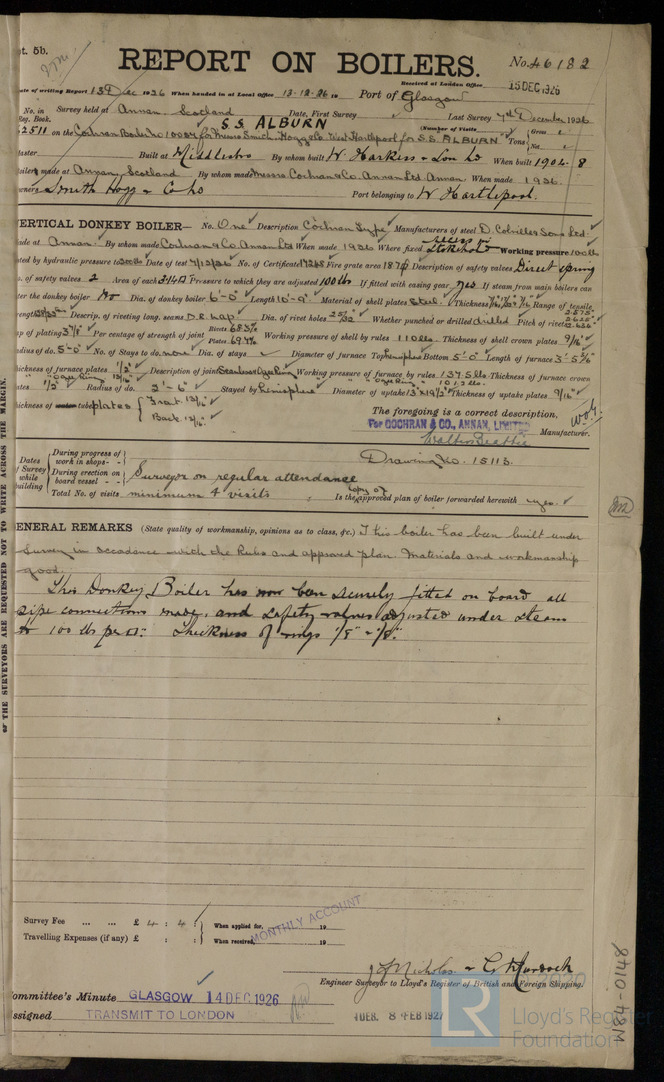 pt. 5b.
REPORT ON BOILERS.
No. 46182
Received at London Office 15 DEC 1926
Date of writing Report 13 Dec 1926 When handed in at Local Office 13-12-26 19 Port of Glasgow
No. in Reg. Book. Survey held at Annan. Scotland Date, First Survey Last Survey 7th December 1926
2511 on the Cochran Boiler No 10087 for Messrs Smith Hogg & Co. West Hartlepool for S.S. ALBURN
S.S. ALBURN
(Number of Visits) Tons Gross Net
Master Built at Middlesbro By whom built W. Harkess & Son Ltd When built 1904. 8
Boilers made at Annan, Scotland By whom made Messrs Cochran & Co Annan Ltd. Annan. When made 1926.
Owners Smith Hogg & Co Ltd Port belonging to W Hartlepool.
VERTICAL DONKEY BOILER— No. One Description Cochran Type Manufacturers of steel D. Colvilles & Sons Ltd.
Made at Annan. By whom made Cochran & Co. Annan Ltd When made 1926 Where fixed Stokehold Working pressure 100 lb
tested by hydraulic pressure to 200 lb Date of test 7/12/26 No. of Certificate 17268 Fire grate area 18.7 Description of safety valves Direct spring
No. of safety valves 2 Area of each 3.14 Pressure to which they are adjusted 100 lbs If fitted with easing gear yes If steam from main boilers can
enter the donkey boiler No Dia. of donkey boiler 6'-0" Length 10'-9" Material of shell plates Steel Thickness Range of tensile
strength Descrip. of riveting long. seams D.R. Lap Dia. of rivet holes 25/32" Whether punched or drilled drilled Pitch of rivets 2.575" 2.625" 2.636
Lap of plating 3 7/8" Per centage of strength of joint Rivets 68.3% Plates 69.4% Working pressure of shell by rules 110 lbs Thickness of shell crown plates 9/16"
Radius of do. 5'-0" No. of Stays to do. none Dia. of stays Diameter of furnace Top hemisphere Bottom 5'-0" Length of furnace 3'-5 3/8"
Thickness of furnace plates 1/2" Description of joint Seamless Ogee Ring Working pressure of furnace by rules 137.5 lbs Thickness of furnace crown
" Ogee Ring 13/16" " Ogee Ring 101.3 lbs.
plates 1/2" Radius of do. 2'-6" Stayed by hemisphere Diameter of uptake 13" x 19 1/2" Thickness of uptake plates 9/16"
Thickness of water tube plates Front 13/16" Back 13/16"
The foregoing is a correct description,
For COCHRAN & CO., ANNAN, LIMITED
Walter Beattie Manufacturer.
Drawing No. 15113.
Dates of Survey while building
During progress of work in shops - -
During erection on board vessel - - -
Total No. of visits
Surveyor on regular attendance
minimum 4 visits
Is the copy of approved plan of boiler forwarded herewith yes.
GENERAL REMARKS (State quality of workmanship, opinions as to class, &c.) This boiler has been built under
survey in accordance with the Rules and approved plan. Materials and workmanship
good.
This Donkey Boiler has now been securely fitted on board all
pipe connections made, and safety valves adjusted under steam
to 100 lbs per □". Thickness of rings
OF THE SURVEYORS ARE REQUESTED NOT TO WRITE ACROSS THE MARGIN.
Survey Fee ... ... £ 4 : 4 :
Travelling Expenses (if any) £ : :
When applied for, 19
When received, 19
MONTHLY ACCOUNT
J. Nicholas & G. Murdoch
Engineer Surveyor to Lloyd's Register of British and Foreign Shipping.
Committee's Minute GLASGOW 14 DEC 1926
Assigned TRANSMIT TO LONDON
TUES. 8 FEB 1927
W84-0148
LR
2020
Lloyd's Register
Foundation